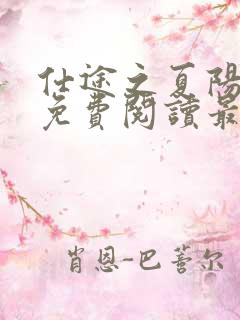 仕途之夏陽
免費閱讀最
肖恩-巴薝尔